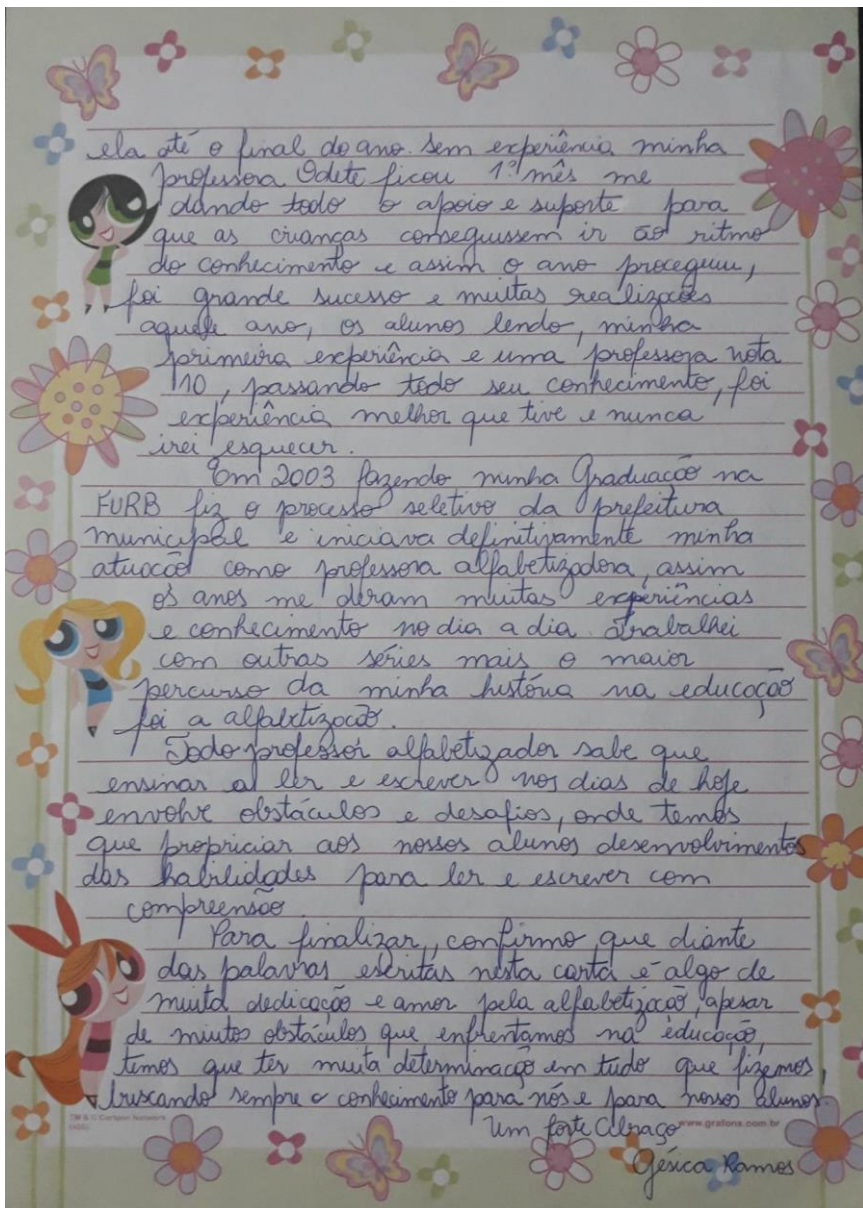 ela até o final do ano. Sem experiência minha
professora Odete ficou 1º mês me
dando todo o apoio e suporte para
que as crianças conseguissem ir ao ritmo
do conhecimento e assim o ano proceguiu,
foi grande sucesso e muitas realizações
aquele ano, os alunos lendo, minha
primeira experiência e uma professora nota
10, passando todo seu conhecimento, foi
experiência melhor que tive e nunca
irei esquecer.
Em 2003 fazendo minha Graduação na
FURB fiz o processo seletivo da prefeitura
municipal e iniciava definitivamente minha
atuação como professora alfabetizadora, assim
os anos me deram muitas experiências
e conhecimento no dia a dia. Trabalhei
com outras séries mais o maior
percurso da minha história na educação
foi a alfabetização.
Todo professor alfabetizador sabe que
ensinar a ler e escrever nos dias de hoje
envolve obstáculos e desafios, onde temos
que propriciar aos nossos alunos desenvolvimentos
das habilidades para ler e escrever com
compreensão.
Para finalizar, confirmo que diante
das palavras escritas nesta carta é algo de
muita dedicação e amor pela alfabetização, apesar
de muitos obstáculos que enfrentamos na educação,
temos que ter muita determinação em tudo que fizemos,
buscando sempre o conhecimento para nós e para nossos alunos.
TM & © Cartoon Network
www.grafons.com.br
Um forte Abraço
Gésica Ramos